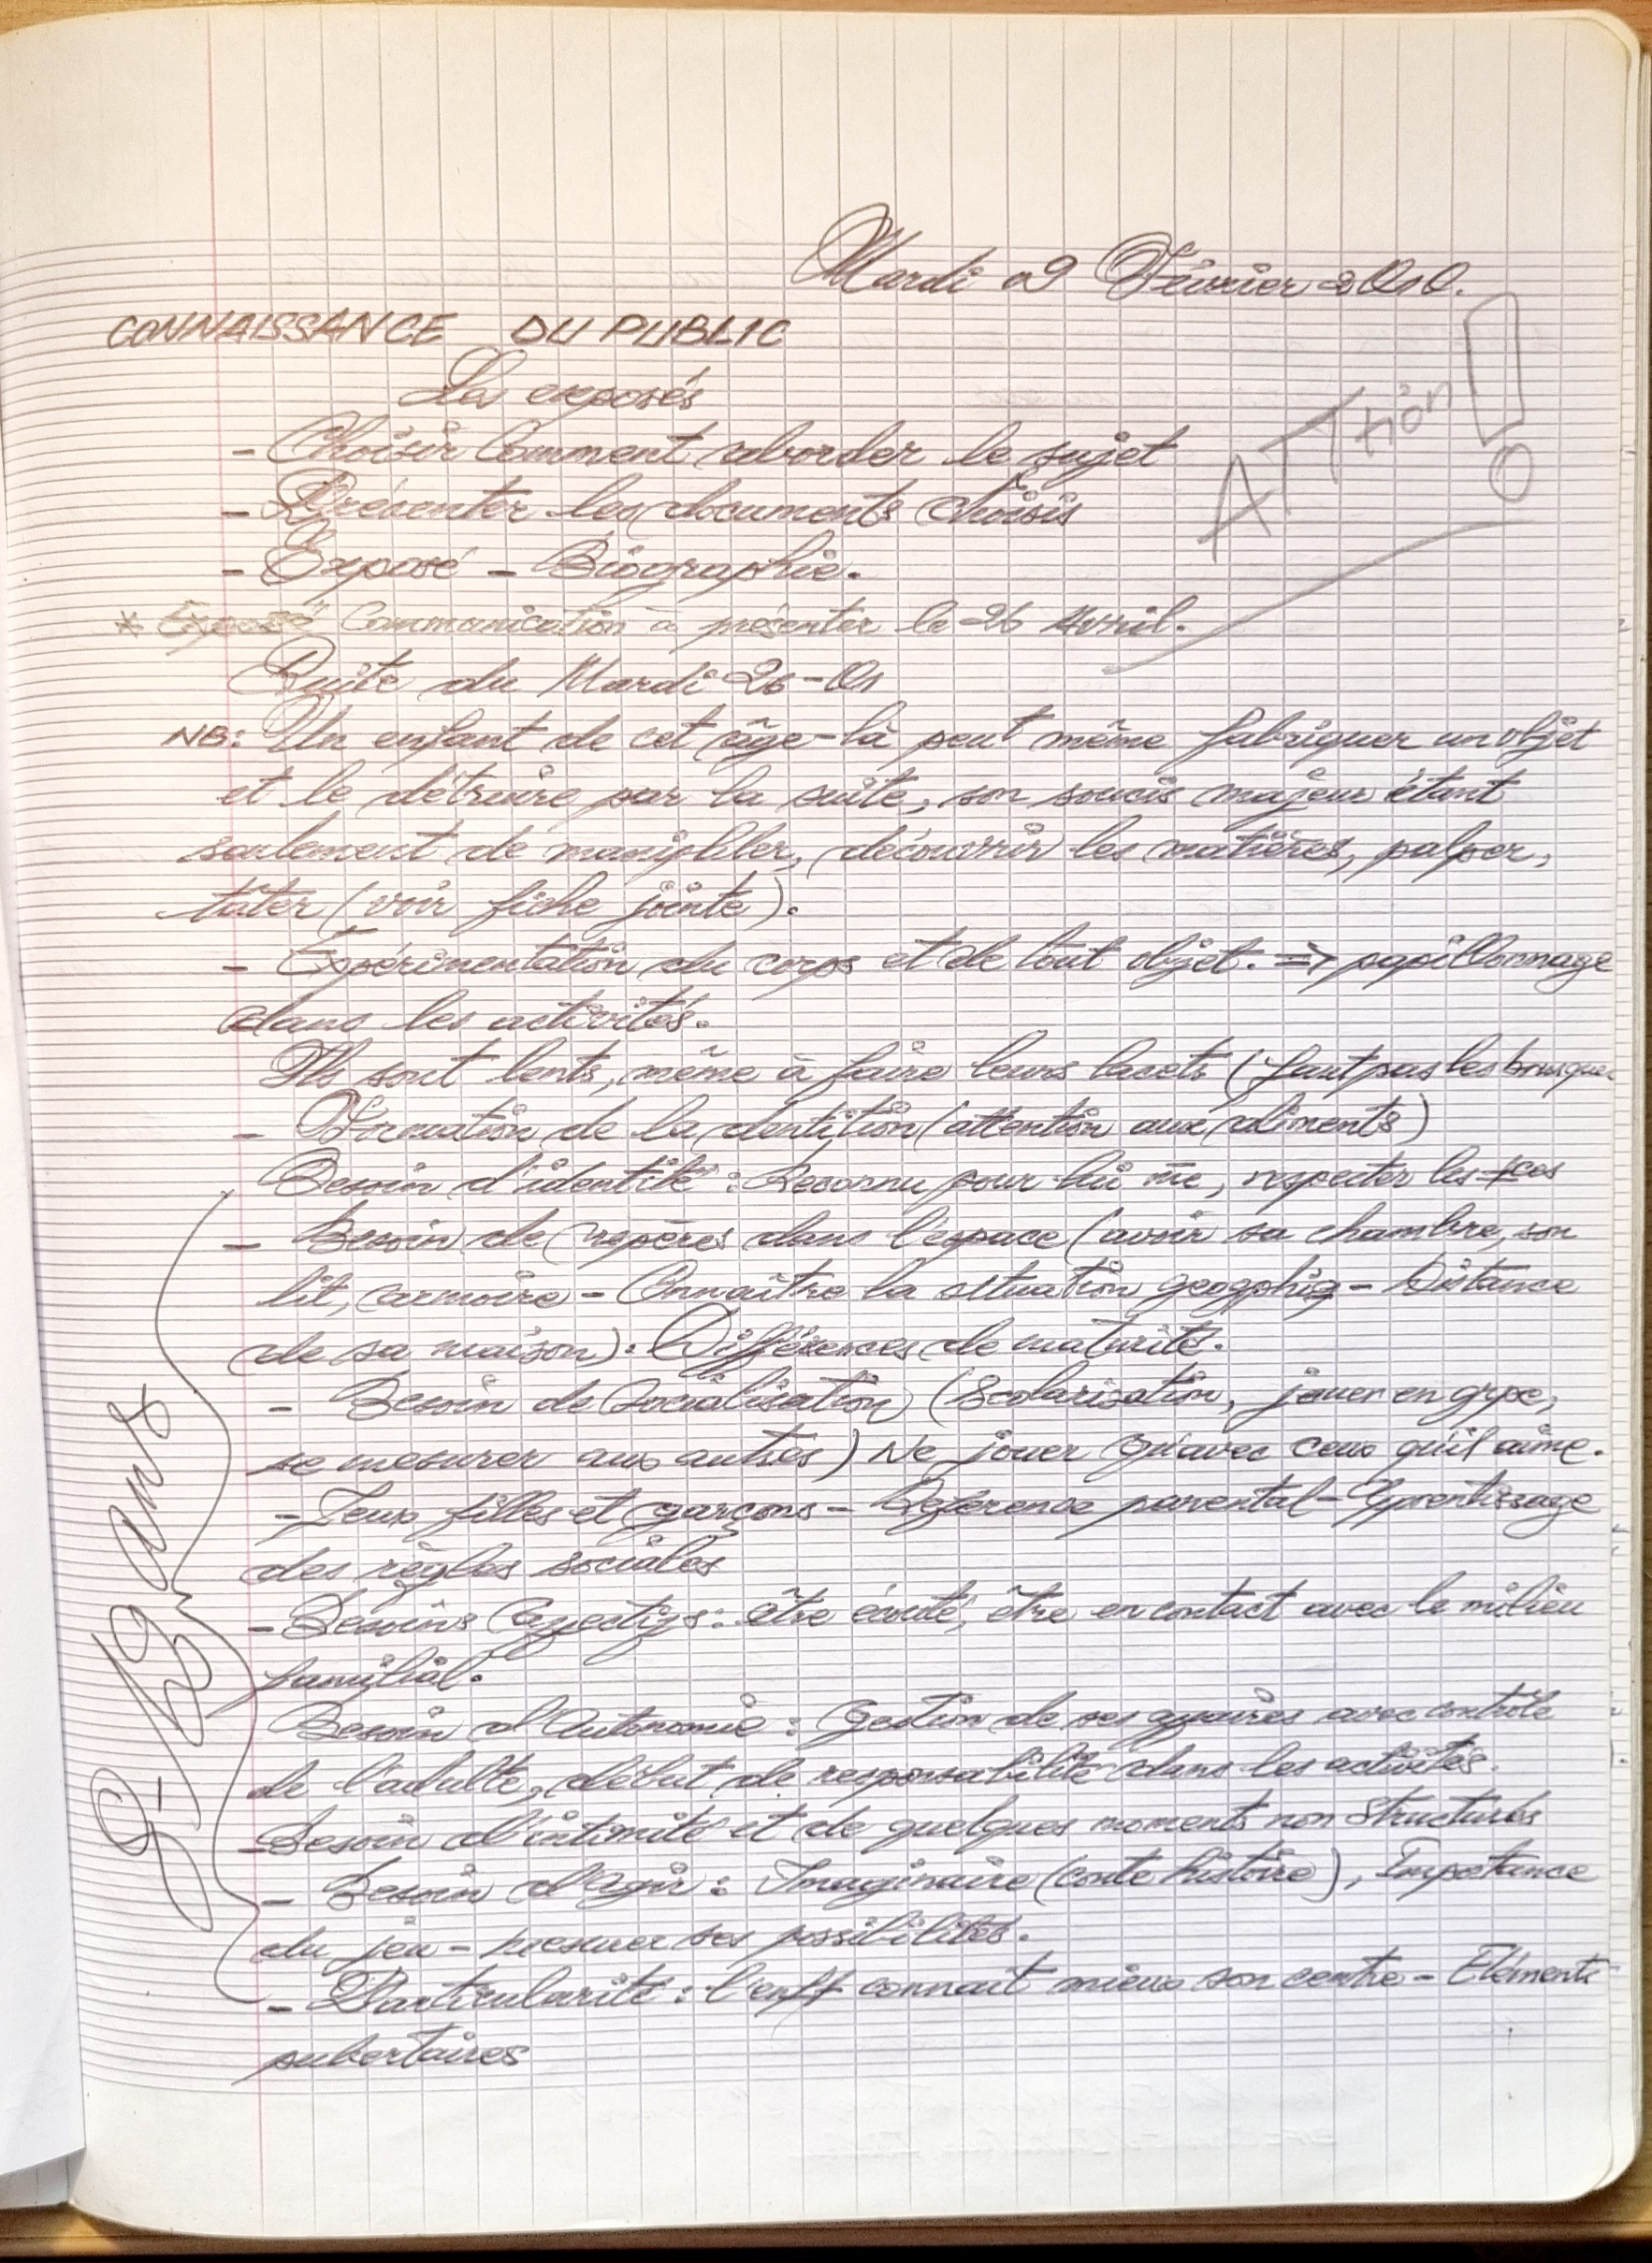 Mardi 09 Février 2010.
CONNAISSANCE DU PUBLIC
Les exposés
ATTtion !
- Choisir Comment aborder le sujet
- Présenter les documents choisis
- Exposé - Biographie.
* Exposé Communication à présenter le 26 Avril.
Suite du Mardi 26-01
NB: Un enfant de cet âge-là peut même fabriquer un objet
et le détruire par la suite, son soucis majeur étant
seulement de manipiller, découvrir les matières, palper,
tâter (voir fiche jointe).
- Expérimentation du corps et de tout objet. => papillonnage
dans les activités.
Ils sont lents, même à faire leurs lacets (faut pas les brusquer
- Formation de la dentition (attention aux aliments)
Besoin d'identité : Reconnu pour lui m̄e, respecter les ≠ces
- Besoin de repères dans l'espace (avoir sa chambre, son
lit, armoire - Connaître la situation geogphiq - Distance
de sa maison). Différences de maturité.
- Besoin de Socialisation (Scolarisation, jouer en grpe,
se mesurer aux autres) Ne jouer qu'avec ceux qu'il aime.
- Jeux filles et garçons - Référence parental - Apprentissage
des règles sociales
- Besoins Affectifs : être écouté, être en contact avec le milieu
familial.
Besoin d'Autonomie : Gestion de ses affaires avec contrôle
de l'adulte, début de responsabilité dans les activités.
- Besoin d'intimité et de quelques moments non Structurés
- Besoin d'Agir : Imaginaire (conte histoire), Impotance
du jeu - mesurer ses possibilités.
- Particularité : l'enft connaît mieux son centre - Eléments
pubertaires
ans